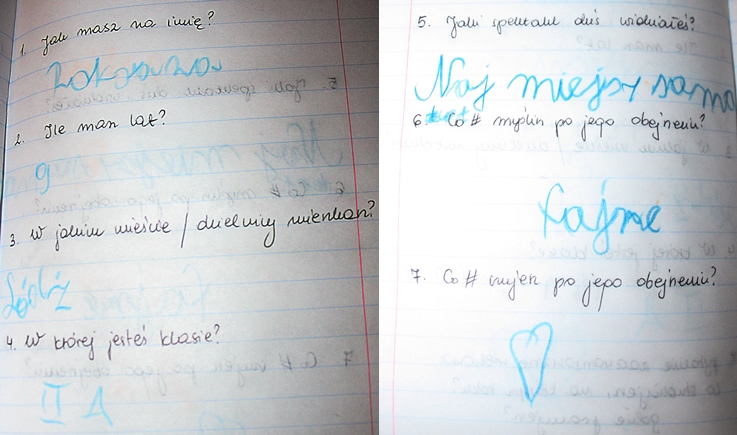 1. Jak masz na imię?
2. Ile masz lat?
9
3. W jakim mieście / dzielnicy mieszkasz?
Łódź
4. W której jesteś klasie?
II A
5. Jaki spektakl dziś widziałeś?
Naj miejsy samo
6. Co # myślisz po jego obejrzeniu?
fajne
7. Co # czujesz po jego obejrzeniu?